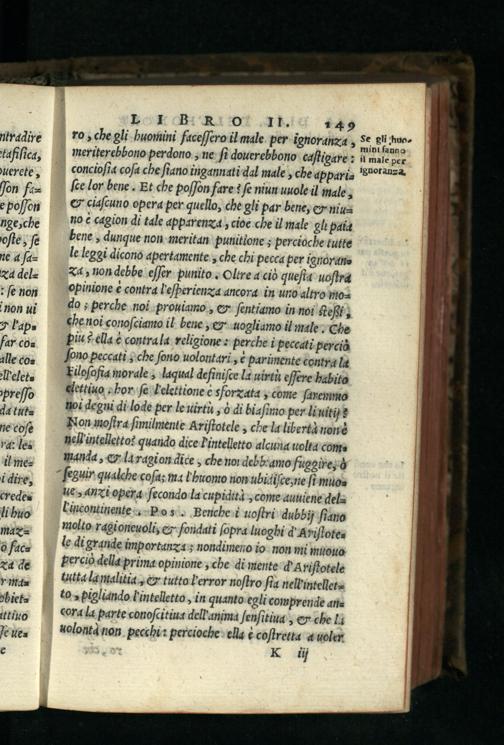 LIBRO II. 149
ro, che gli huomini facessero il male per ignoranza,
meriterebbono perdono, ne si douerebbono castigare:
conciosia cosa che siano ingannati dal male, che appari=
sce lor bene. Et che posson fare? se niun uuole il male,
& ciascuno opera per quello, che gli par bene, & niu=
no è cagion di tale apparenza, cioe che il male gli paia
bene, dunque non meritan punitione; percioche tutte
le leggi dicono apertamente, che chi pecca per ignoran=
za, non debbe esser punito. Oltre a ciò questa uostra
opinione è contra l'esperienza ancora in uno altro mo=
do; perche noi prouiamo, & sentiamo in noi stessi,
che noi conosciamo il bene, & uogliamo il male. Che
piu? ella è contra la religione: perche i peccati perciò
sono peccati, che sono volontari, è parimente contra la
Filosofia morale, laqual definisce la uirtù essere habito
elettiuo. hor se l'elettione è sforzata, come saremmo
noi degni di lode per le uirtù, ò di biasimo per li uitij?
Non mostra similmente Aristotele, che la libertà non è
nell'intelletto? quando dice l'intelletto alcuna uolta com=
manda, & la ragion dice, che noi debbiamo fuggire, ò
seguir qualche cosa; ma l'huomo non ubidisce, ne si muo=
ue, anzi opera secondo la cupidità, come auuiene del=
l'incontinente. Pos. Benche i uostri dubbij siano
molto ragioneuoli, & fondati sopra luoghi d'Aristote=
le di grande importanza; nondimeno io non mi muouo
perciò della prima opinione, che di mente d'Aristotele
tutta la malitia, & tutto l'error nostro sia nell'intellet=
to, pigliando l'intelletto, in quanto egli comprende an=
cora la parte conoscitiua dell'anima sensitiua, & che la
uolontà non pecchi: percioche ella è costretta a uoler
K iij
Se gli huo-
mini fanno
il male per
ignoranza.
ntradire
etafisica,
ouerete,
sson fa=
e posson
nge, che
oste, se
ne a sa=
za del=
: se non
i non ui
& l'ap=
far co=
alle co=
ell'elet=
opresso
da tut=
ne cose
ra: le=
il me=
oi dire,
crede=
gli huo
maz=
o fac=
za de
r ma=
obiet=
attiuo
se ue=
e